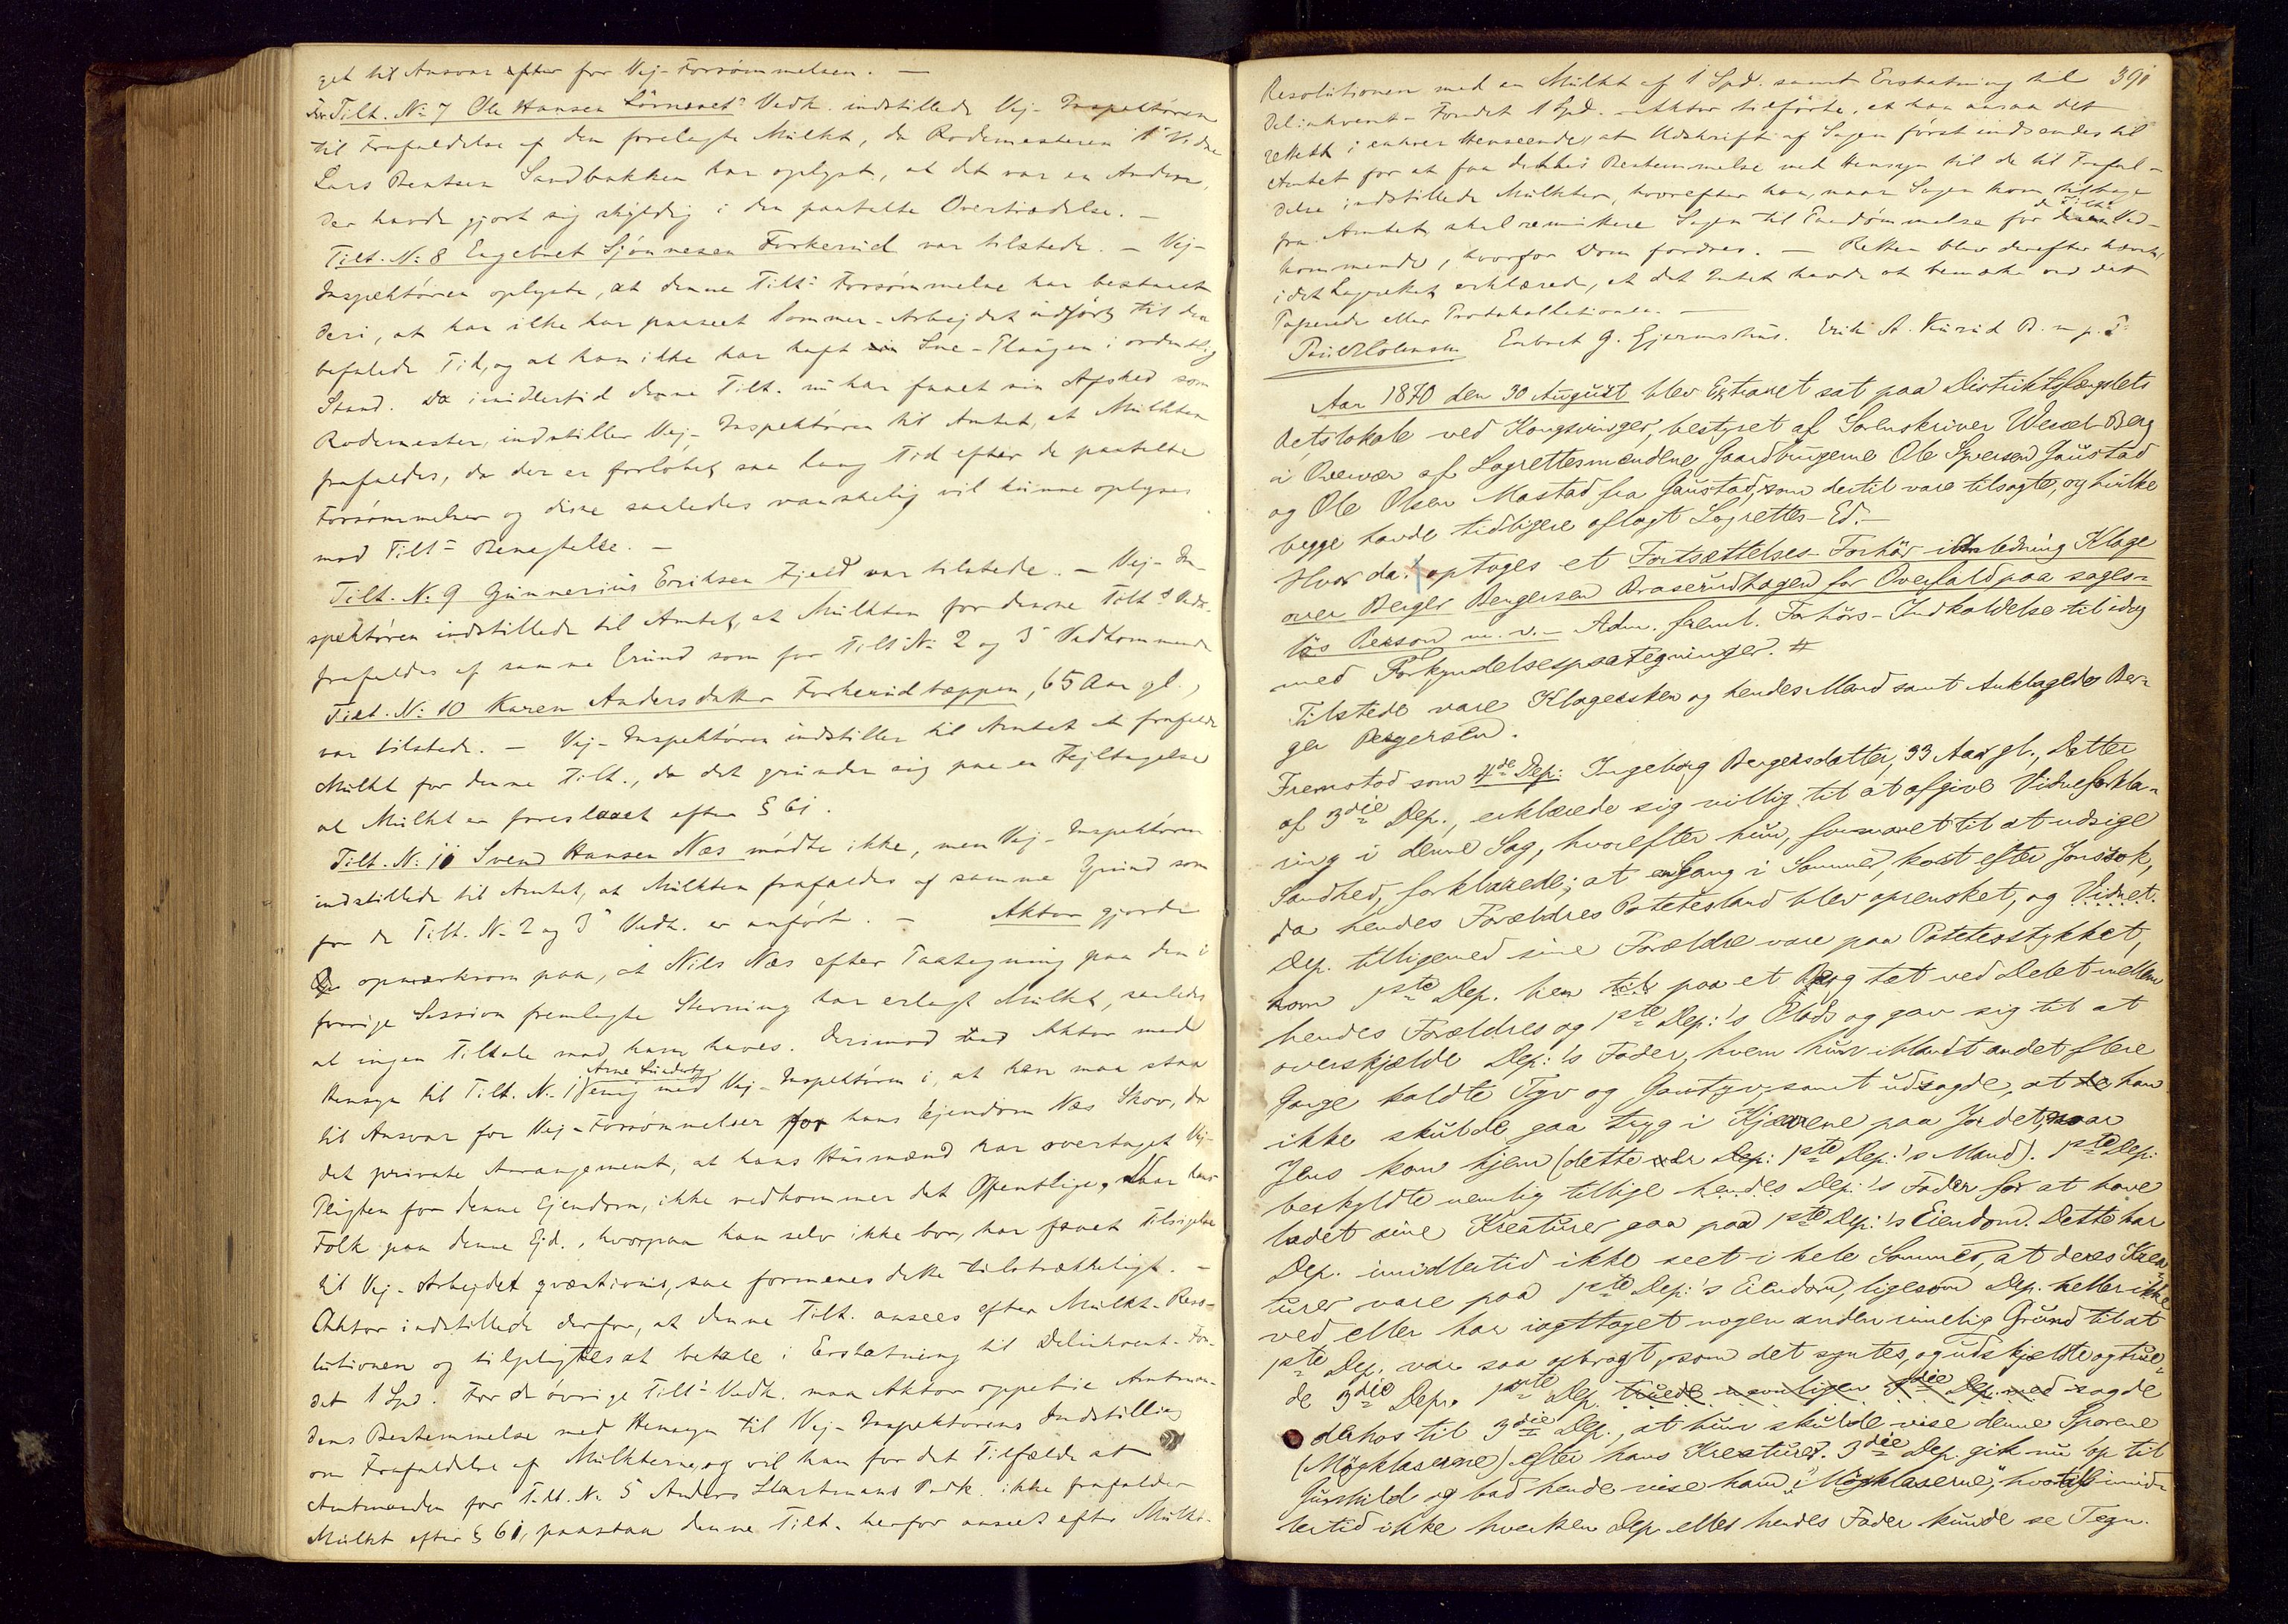 get til Ansvar efter for Vej-Forsømmelsen. —
For Tilt. No 7 Ole Hansen Lørnæset's Vedk. indstillede Vej-Inspektøren
til Frafaldelse af den forelagte Mulkt, da Rodemesteren 1' Vidne
Lars Bentsen Sandbakken har oplyst, at det var en Anden,
der havde gjort sig skyldig i den paatalte Overtrædelse. —
Tilt. No 8 Engebret Sjønnesen Forkerud var tilstede. — Vej-
Inspektøren oplyste, at denne Tilt's Forsømmelse har bestaaet
deri, at han ikke har paaseet Sommer-Arbejdet udført til den
befalede Tid, og at han ikke har haft sin Sne-Plougen i ordentlig
Stand. Da imidlertid denne Tilt. nu har faaet sin Afsked som
Rodemester, indstiller Vej-Inspektøren til Amtet, at Mulkten
frafaldes, da der er forløbet saa lang Tid efter de paatalte
Forsømmelser og disse saaledes vanskelig vil kunne oplyses
mod Tilt's Benegtelse. —
Tilt. No 9 Gunnerius Eriksen Fjeld var tilstede. — Vej-In-
spektøren indstillede til Amtet, at Mulkten for denne Tilt's Vedk.
frafaldes af samme Grund som for Tilt No 2 og 3' Vedkommende
Tilt. No 10 Karen Andersdatter Forkerudtæppen, 65 Aar gl.,
var tilstede. — Vej-Inspektøren indstiller til Amtet at frafalde
Mulkt for denne Tilt., da det grunder sig paa en Fejltagelse
at Mulkt er foreslaaet efter § 61.
Tilt. No 11 Svend Hansen Næs mødte ikke, men Vej-Inspektøren
indstillede til Amtet, at Mulkten frafaldes af samme Grund som
for de Tilt. No 2 og 3' Vedk. er anført. — Aktor gjorde
opmærksom paa, at Nils Næs efter Paategning paa den i
forrige Session fremlagte Stevning har erlagt Mulkt, saaledes
at ingen Tiltale mod ham haves. Derimod Aktor med
Hensyn til Tilt. No 1 Arne Linderby enig med Vej-Inspektøren i, at han maa staa
til Ansvar for Vej-Forsømmelser for hans Ejendom Næs Skov, da
det private Arrangement, at hans Husmænd har overtaget Vej-
Pligten for denne Ejendom, ikke vedkommer det Offentlige, Naar hans
Folk paa denne Ejd., hvorpaa han selv ikke bor, har faaet Tilsigelse
til Vej-Arbejdet qvæstionis, saa formenes dette tilstrækkeligt. —
Aktor indstillede derfor, at denne Tilt. ansees efter Mulkt-Reso-
lutionen og tilpligtes at betale i Erstatning til Delinkvent-Fon-
det 1 Spd. For de øvrige Tilt's Vedk. maa Aktor oppebie Amtman-
dens Bestemmelse med Hensyn til Vej-Inspektørens Indstilling
om Frafaldelse af Mulkterne, og vil han for det Tilfælde at
Amtmanden for Tilt. No 5 Anders Vedk. ikke frafalder
Mulkt efter § 61, paastaa denne Tilt. herfor anseet efter Mulkt-
391
Resolutionen med en Mulkt af 1 Spd. samt Erstatning til
Delinkvent-Fondet 1 Spd. Aktor tilførte, at han ansaa det
rettest i enhver Henseende, at Udskrift af Sagen først indsendes til
Amtet for at faa dettes Bestemmelse med Hensyn til de til Frafal-
delse indstillede Mulkter, hvorefter han, naar Sagen kom tilbage
fra Amtet, skal remittere Sagen til Paadømmelse for de Tilt's Ved-
kommende, hvorfor Dom fordres. — Retten blev derefter hævet,
idet Lagrettet erklærede, at det Intet havde at bemærke ved det
Passerede eller Protokollationen. —
Enbret G. Gjermshus. Erik A. Kurud B. m. p. P.
Aar 1870 den 30 August blev Extraret sat paa Distriktsfængslets
Retslokale ved Kongsvinger, bestyret af Sorenskriver Wessel-Berg
i Overvær af Lagrettesmændene Gaardbrugerne Ole Syversen Gaustad
og Ole Olsen Mastad fra Gaustad, som dertil vare tilsagte, og hvilke
begge havde tidligere aflagt Lagrettes-Ed.—
Hvor da: optoges et Fortsættelses-Forhør i Anledning Klage
over Berger Bengersen Braserudhagen for Overfald paa sages-
løs Person m. v. — Adm. freml. Forhørs-Indkaldelse til idag
med Forkyndelsespaategninger. #
Tilstede vare Klagersken og hendes Mand samt Anklagede Ber-
ger Bergersen.
Fremstod som 4de Dep: Ingeborg Bergersdatter, 33 Aar gl., Datter
af 3die Dep., erklærede sig villig til at afgive Vidneforkla-
ring i denne Sag, hvorefter hun, formanet til at udsige
Sandhed, forklarede; at engang i Sommer, kort efter Jonsok,
da hendes Forældres Potetesland blev oprensket, og Vidnet.
Dep. tilligemed sine Forældre vare paa Potetesstykket,
kom 1ste Dep. hen til paa et Berg tæt ved Delet mellem
hendes Forældres og 1ste Dep:'s Plads og gav sig til at
overskjælde Dep:'s Fader, hvem hun iblandt andet flere
Gange kaldte Tyv og Gautyv, samt udsagde, at de han
ikke skulde gaa tryg i Kjærrene paa Jordet, naar
Jens kom hjem (dette er Dep: 1ste Dep:'s Mand). 1ste Dep:
beskyldte nemlig tillige hendes Dep:'s Fader for at have
ladet sine Kreaturer gaa paa 1ste Dep:'s Eiendom. Dette har
Dep. imidlertid ikke seet i hele Sommer, at deres Krea-
turer vare paa 1ste Dep:'s Eiendom, ligesom Dep. heller ikke
ved eller har iagttaget nogen anden rimelig Grund til at
1ste Dep. var saa opbragt, som det syntes, og udskjældte og true-
de 3die Dep. 1ste Dep. truede nemligen 3die Dep. med sagde
derhos til 3die Dep., at hun skulde vise denne Sporene
(Møgklaserne) efter hans Kreaturer. 3die Dep. gik nu op til
Gunhild og bad hende vise ham "Møgklaserne", hvortil imid-
lertid ikke hverken Dep. eller hendes Fader kunde se Tegn.